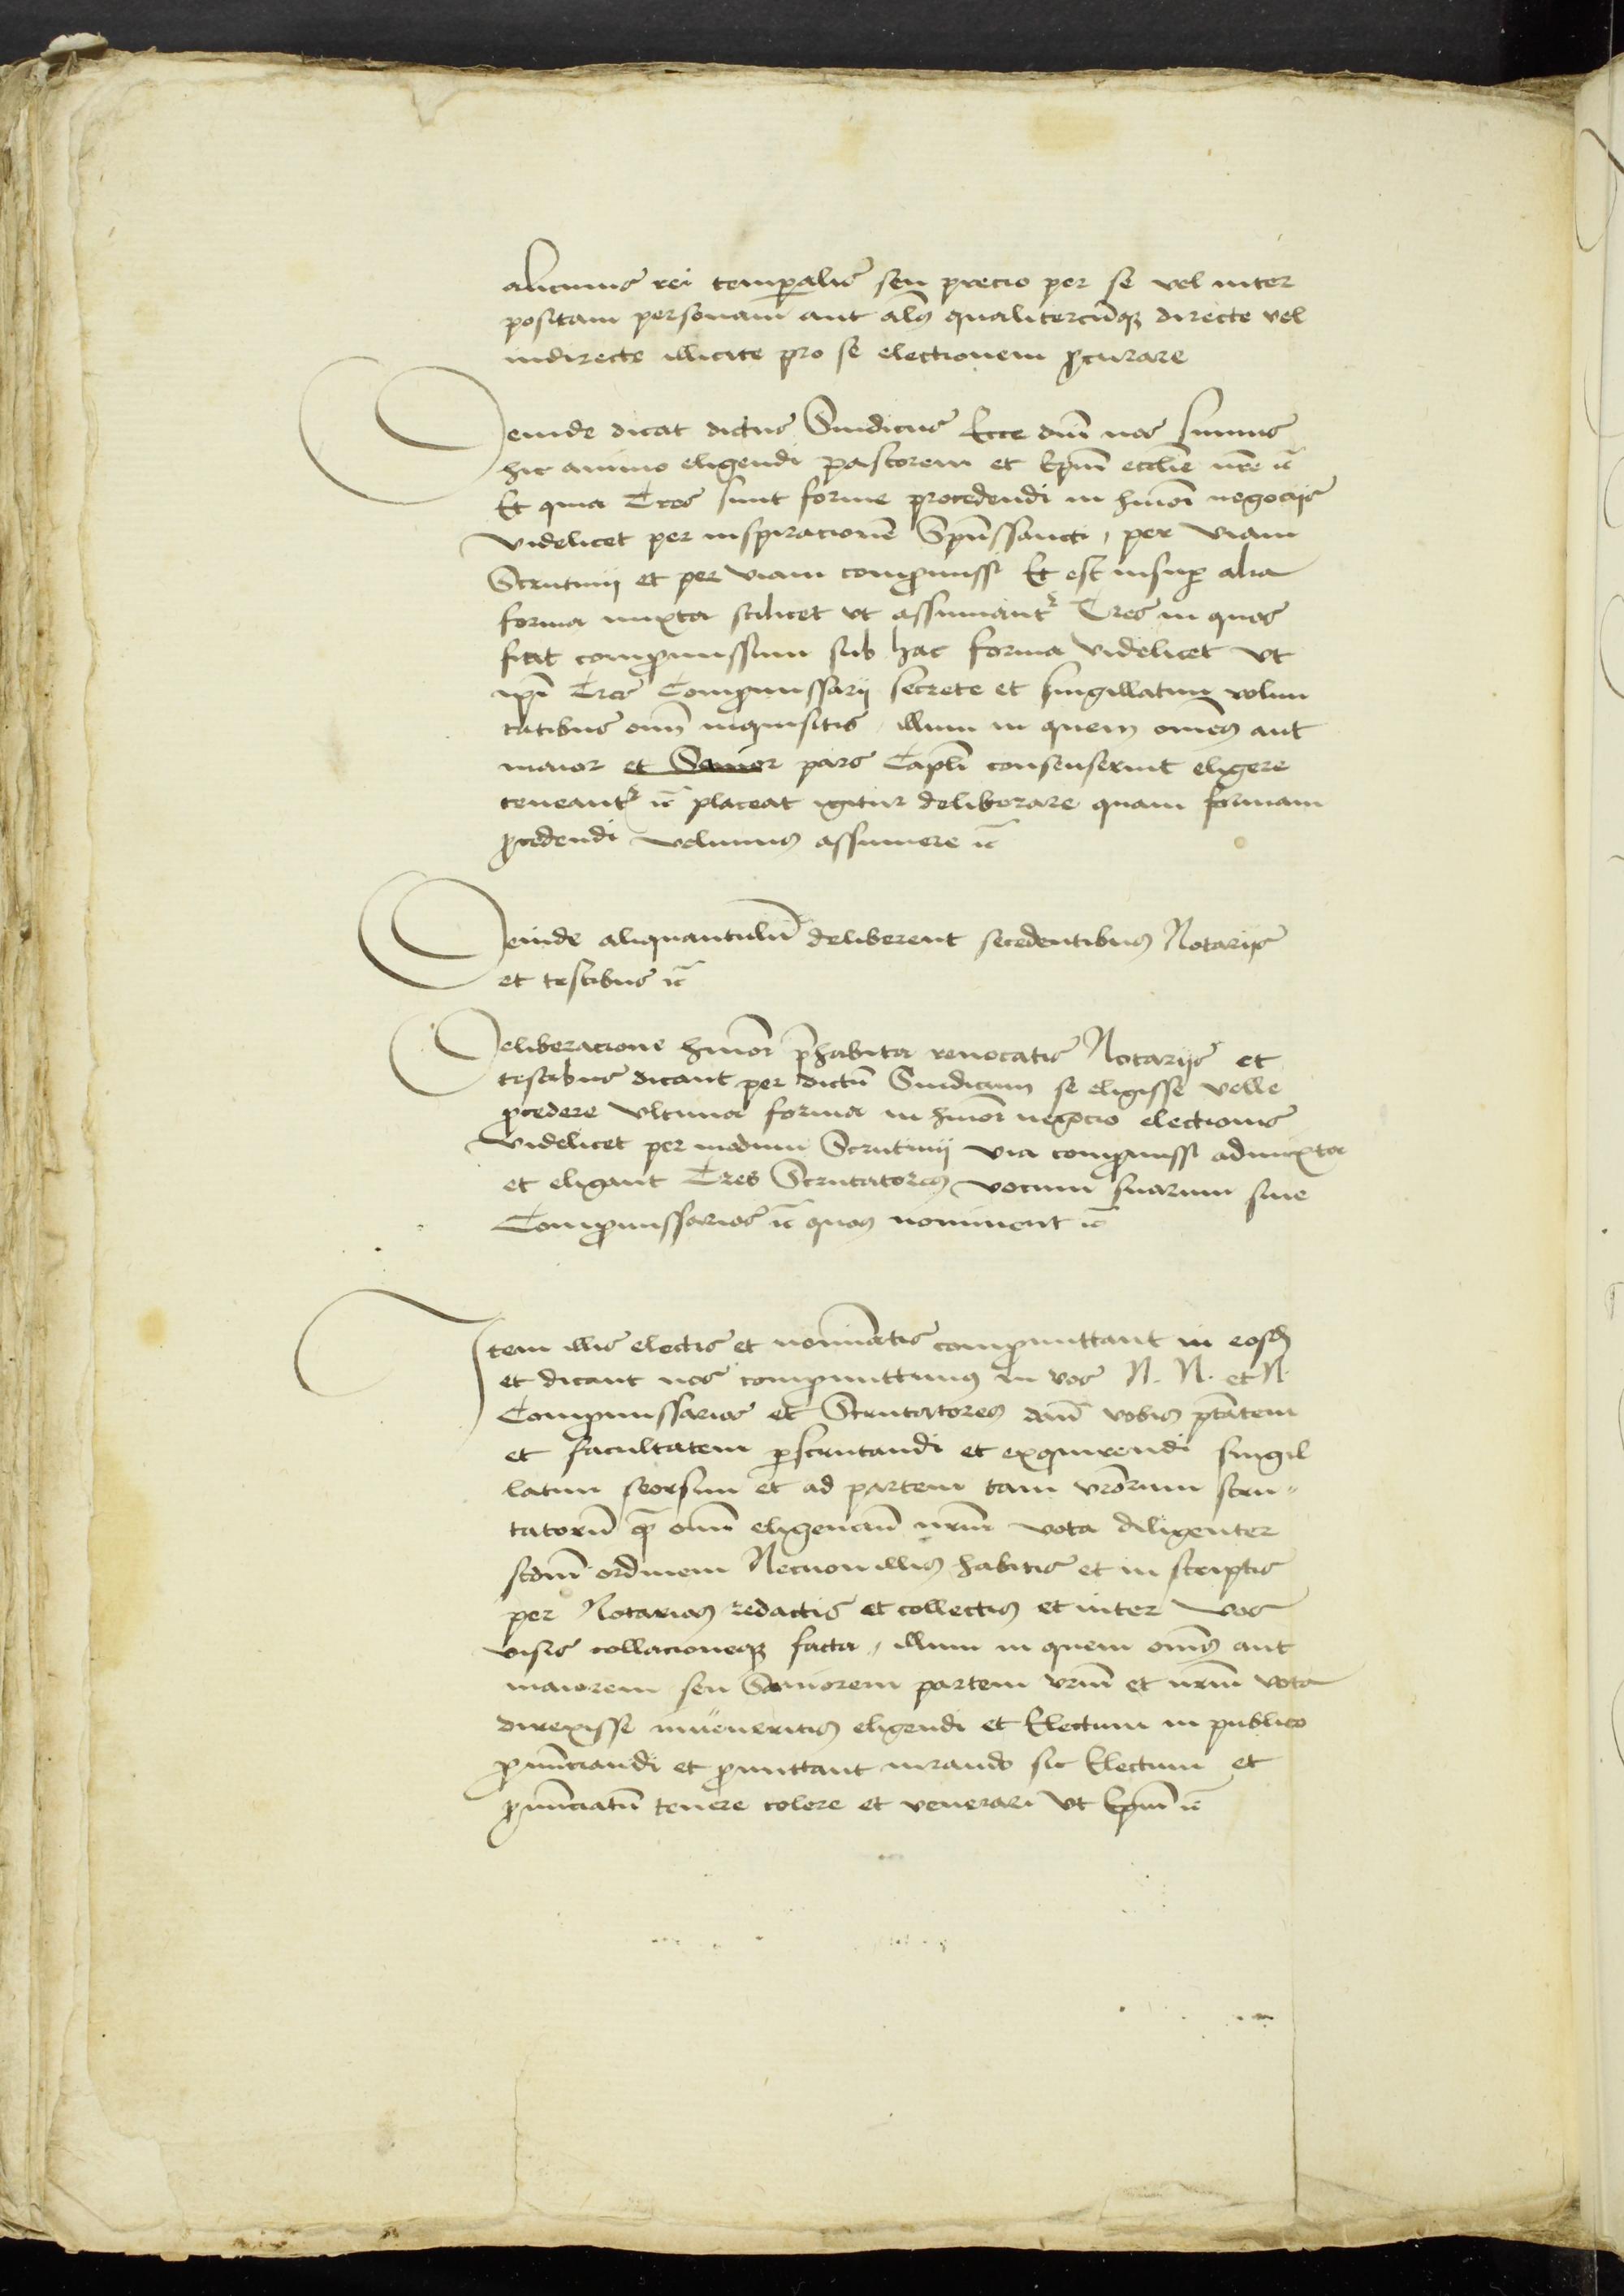 alicuius rei temp̲alis seu precio per se vel inter
positam personam aut als̄ qualitercūqꝫ directe vel
indirecte illicite pro se electionem ꝓcurare
Deinde dicat dictus Sindicus Ecce dn̄i nos sumus
hic animo eligendi pastorem et Ep̄m eccl̄ie nr̄e ꝛc̄
Et quia Tres sunt forme procedendi in hmōi negocijs
videlicet per inspiracionē Sp̄ussancti, per viam
Scrutinij et per viam comꝓmissi Et est insuꝑ alia
forma mixta scilicet vt assumantᷣ Tres in quos
fiat comꝓmissum sub hac forma videlicet vt
ip̄i Tres Comꝓmissarij secrete et singillatim volun
tatibus om̄ inquisitis, illum in quem om̄es aut
maior et Sanior pars Capl̄i consenserint eligere
teneantᷣ ꝛc̄ placeat igitur deliberare quam formam
ꝓcedendi volumus assumere ꝛc̄
Deinde aliquantulū deliberent secedentibus Notarijs
et testibus ꝛc̄
Deliberacione hmōi p̄habita reuocatis Notarijs et
testibus dicant per dictū Sindicum se eligisse velle
ꝓcedere vltima forma in hmōi negocio electionis
videlicet per modum Scrutinij via comꝓmissi admixta
et eligant Tres Scrutatores vocum suarum siue
Comꝓmissarios ꝛc̄ quos nominent ꝛc̄
Item illis electis et nomīatis comꝓmittant in eosd̄
et dicant nos comꝓmittimus in vos N. N. et N.
Comꝓmissarios et Scrutatores dam̄ vobis ptātem
et facultatem ꝑscrutandi et exquirendi singil
latim seorsim et ad partem tam vr̄orum scru-
tatorū qͣ om̄ eligenciū nr̄m vota diligenter
scdm̄ ordinem Necnon illis habitis et in scriptis
per Notarios redactis et collectis et inter vos
visis collacioneqꝫ facta, illum in quem om̄s aut
maiorem seu Saniorem partem vr̄m et nr̄m vota
direxisse inueneritis eligendi et Electum in publico
ꝓnūciandi et ꝓmittant iurando sic Electum et
ꝓnūciatū tenere colere et venerari vt Ep̄m ꝛc̄